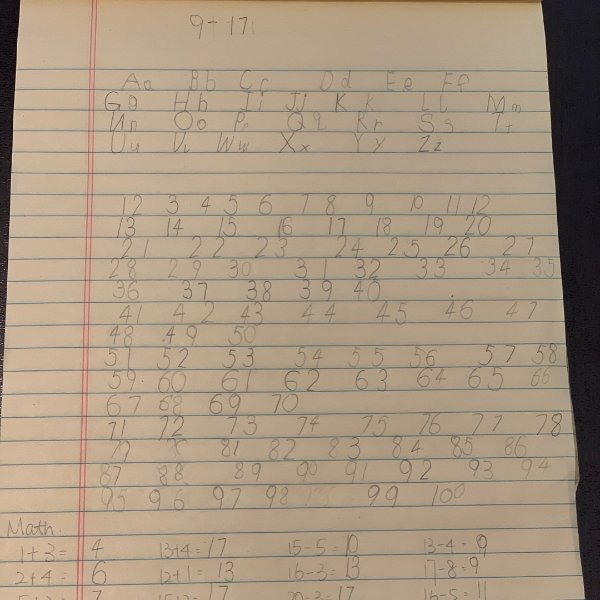 9+17
Aa Bb Cc Dd Ee Ff
Gg Hh Ii Jj Kk Ll Mm
Nn Oo Pp Qq Rr Ss Tt
Uu Vv Ww Xx Yy Zz
12 3 4 5 6 7 8 9 10 11 12
13 14 15 16 17 18 19 20
21 22 23 24 25 26 27
28 29 30 31 32 33 34 35
36 37 38 39 40
41 42 43 44 45 46 47
48 49 50
51 52 53 54 55 56 57 58
59 60 61 62 63 64 65 66
67 68 69 70
71 72 73 74 75 76 77 78
79 81 82 83 84 85 86
87 88 89 90 91 92 93 94
95 96 97 98 99 100
Math
1+3= 4 13+4=17 15-5=10 13-4=9
2+4= 6 12+1=13 16-3=13 17-8=9
7 17 20-3=17 16-5=11